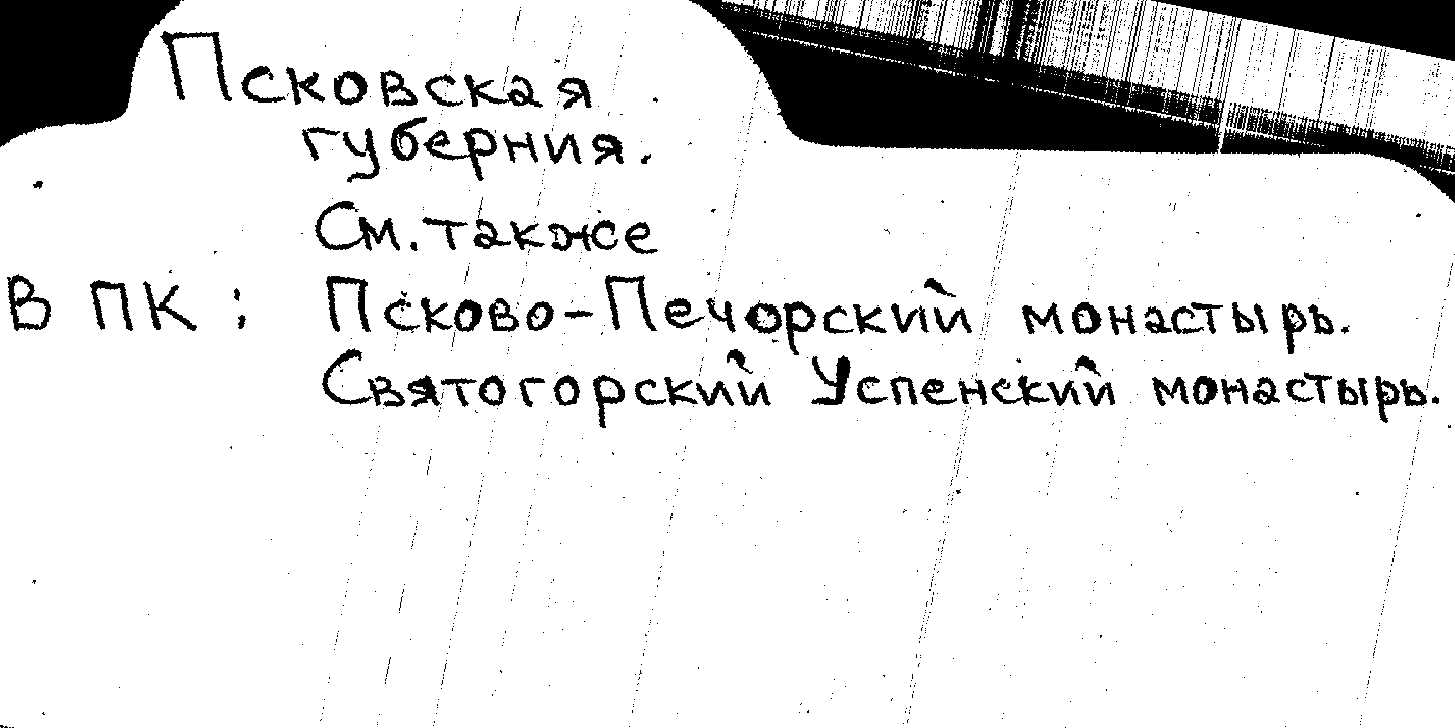 Псковская
губерния.
См. также
В ПК: Псково-Печорский монастырь.
Святогорский Успенский монастырь.